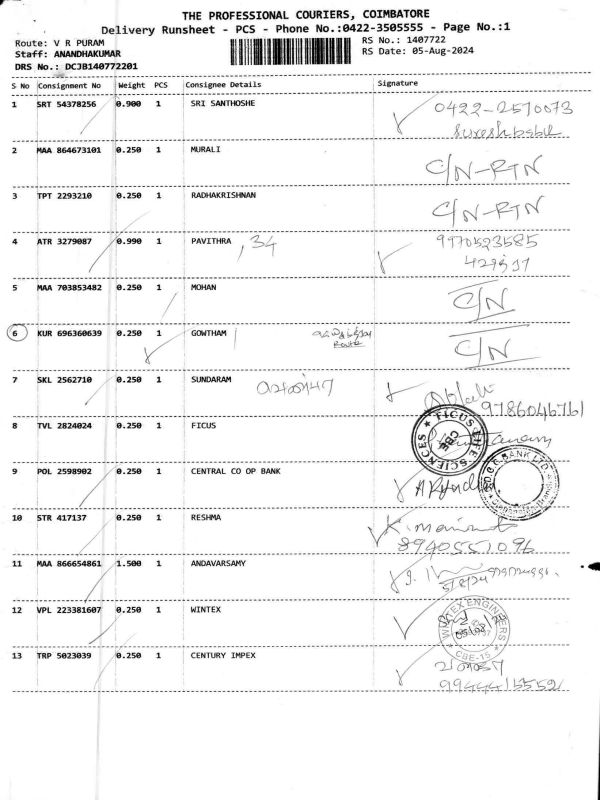 THE PROFESSIONAL COURIERS, COIMBATORE
Delivery Runsheet - PCS - Phone No.:0422-3505555 - Page No.:1
Route: V R PURAM
RS No.: 1407722
Staff: ANANDHAKUMAR
RS Date: 05-Aug-2024
DRS No.: DCJB140772201
S No Consignment No Weight PCS Consignee Details Signature
1 SRT 54378256 0.900 1 SRI SANTHOSHE 0422-2570073
Sureshbabu
2 MAA 864673101 0.250 1 MURALI C/N-RTN
3 TPT 2293210 0.250 1 RADHAKRISHNAN C/N-RTN
4 ATR 3279087 0.990 1 PAVITHRA , 34 9170523585
5 MAA 703853482 0.250 1 MOHAN C/N
6 KUR 696360639 0.250 1 GOWTHAM Route C/N
7 SKL 2562710 0.250 1 SUNDARAM
9786046761
8 TVL 2824024 0.250 1 FICUS FICUS LIFE SCIENCES CBE
9 POL 2598902 0.250 1 CENTRAL CO OP BANK BANK LTD
10 STR 417137 0.250 1 RESHMA
8940551096
11 MAA 866654861 1.500 1 ANDAVARSAMY 5/8/24
12 VPL 223381607 0.250 1 WINTEX WINTEX ENGINEERS CBE-15
13 TRP 5023039 0.250 1 CENTURY IMPEX
9944415552